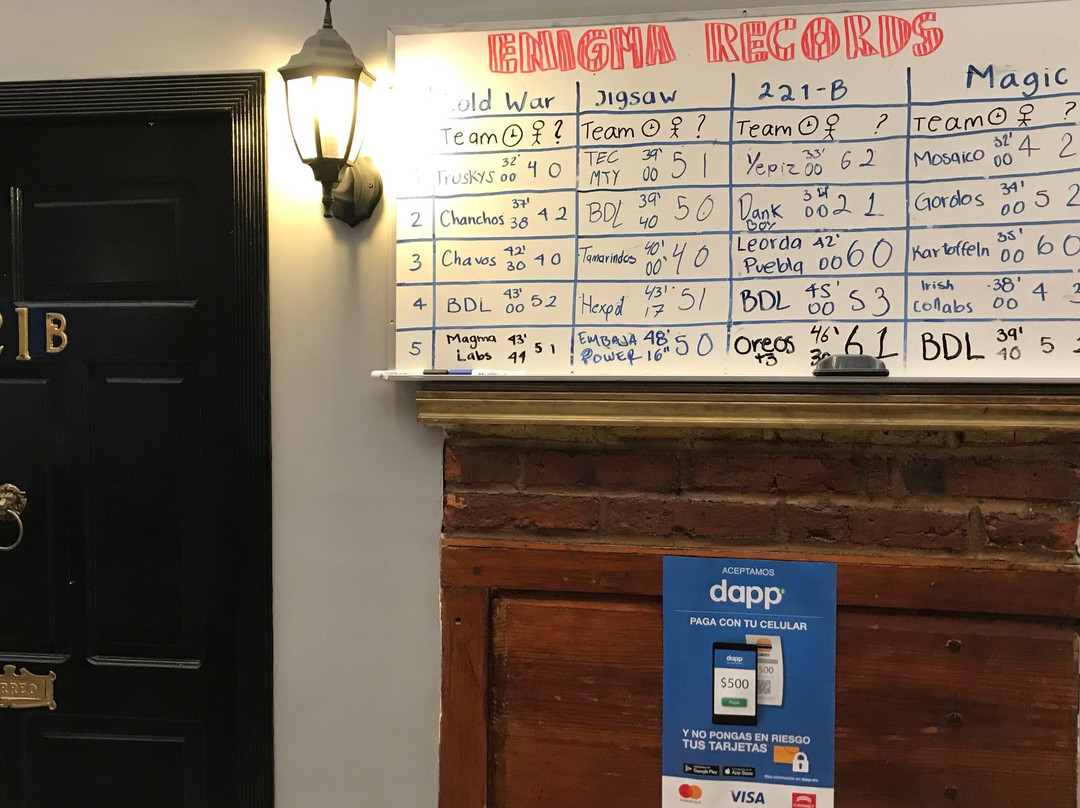 ENIGMA RECORDS
old War Jigsaw 221-B Magic
Team ? Team ? Team ? Team ?
1 Truskys 32' 00 4 0 TEC MTY 39' 00 5 1 Yepiz 33' 00 6 2 Mosaico 32' 00 4 2
2 Chanchos 37' 38 4 2 BDL 39' 40 5 0 Dank Boy 34' 00 2 1 Gordos 34' 00 5 2
3 Chavos 42' 30 4 0 Tamarindos 40' 00' 4 0 Leorda Puebla 42' 00 6 0 Kartoffeln 35' 00 6 0
4 BDL 43' 00 5 2 Hexpd 43' 17 5 1 BDL 45' 00 5 3 Irish collabs 38' 00 4
5 Magma Labs 43' 44 5 1 EMBAJA POWER 48' 16" 5 0 Oreos +3 46' 6 1 BDL 39' 40 5
21B
CORREO
ACEPTAMOS
dapp
PAGA CON TU CELULAR
dapp
$500
500
Y NO PONGAS EN RIESGO
TUS TARJETAS
Google Play App Store
mastercard VISA